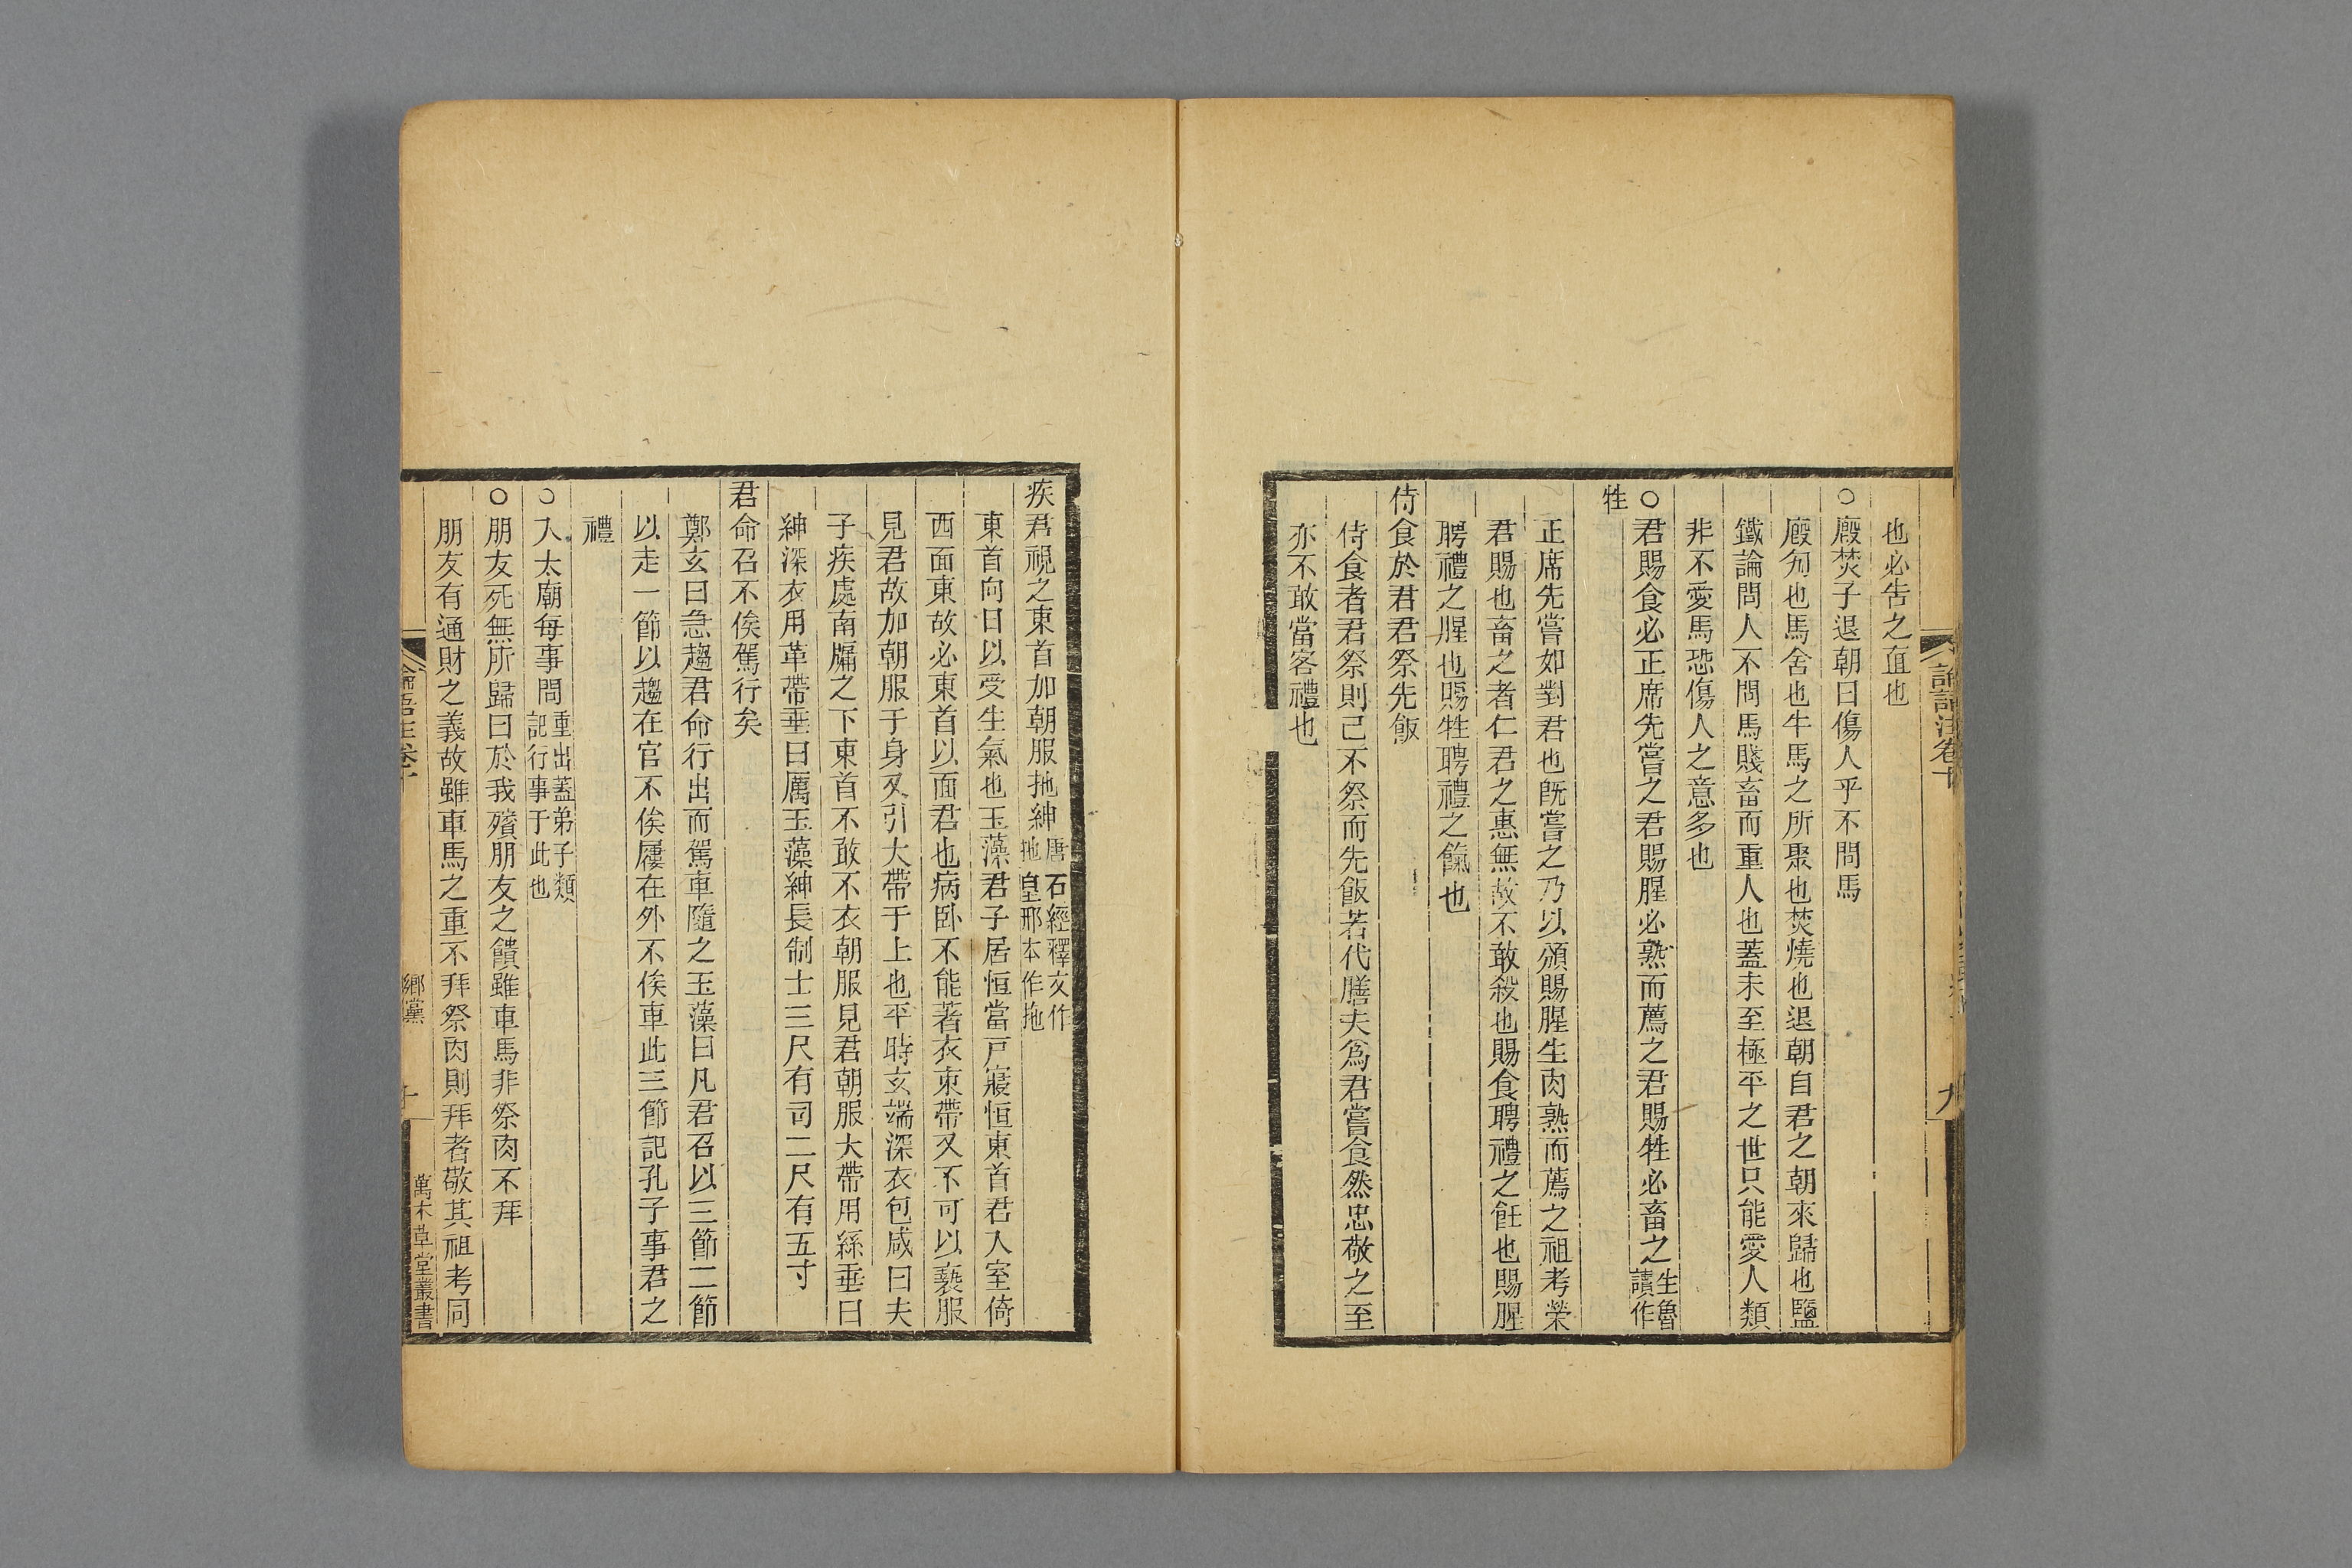 論語注卷十
九
也必告之直也
○廄焚子退朝曰傷人乎不問馬
廄勼也馬舍也牛馬之所聚也焚燒也退朝自君之朝來歸也鹽
鐵論問人不問馬賤畜而重人也蓋未至極平之世只能愛人類
非不愛馬恐傷人之意多也
○君賜食必正席先嘗之君賜腥必熟而薦之君賜牲必畜之生魯讀作
牲
正席先嘗如對君也旣嘗之乃以頒賜腥生肉熟而薦之祖考榮
君賜也畜之者仁君之惠無故不敢殺也賜食聘禮之飪也賜腥
聘禮之腥也賜牲聘禮之餼也
侍食於君君祭先飯
侍食者君祭則己不祭而先飯若代膳夫爲君嘗食然忠敬之至
亦不敢當客禮也
疾君視之東首加朝服扡紳唐石經釋文作扡皇邢本作拖
東首向日以受生氣也玉藻君子居恒當戸寢恒東首君入室倚
西面東故必東首以面君也病卧不能著衣束帶又不可以褻服
見君故加朝服于身又引大帶于上也平時玄端深衣包咸曰夫
子疾處南牖之下東首不敢不衣朝服見君朝服大帶用絲垂曰
紳深衣用革帶垂曰厲玉藻紳長制士三尺有司二尺有五寸
君命召不俟駕行矣
鄭玄曰急趨君命行出而駕車隨之玉藻曰凡君召以三節二節
以走一節以趨在官不俟屨在外不俟車此三節記孔子事君之
禮
○入太廟每事問重出蓋弟子類記行事于此也
○朋友死無所歸曰於我殯朋友之饋雖車馬非祭肉不拜
朋友有通財之義故雖車馬之重不拜祭肉則拜者敬其祖考同
論語注卷十
鄉黨
十
萬木草堂叢書